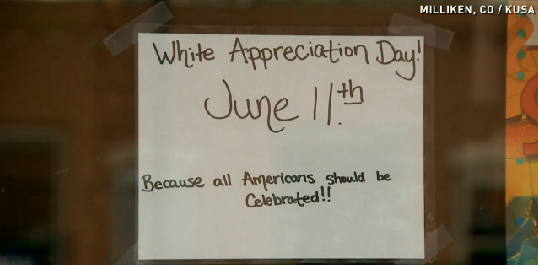 MILLIKEN, CO / KUSA
White Appreciation Day!
June 11th
Because all Americans should be
Celebrated!!